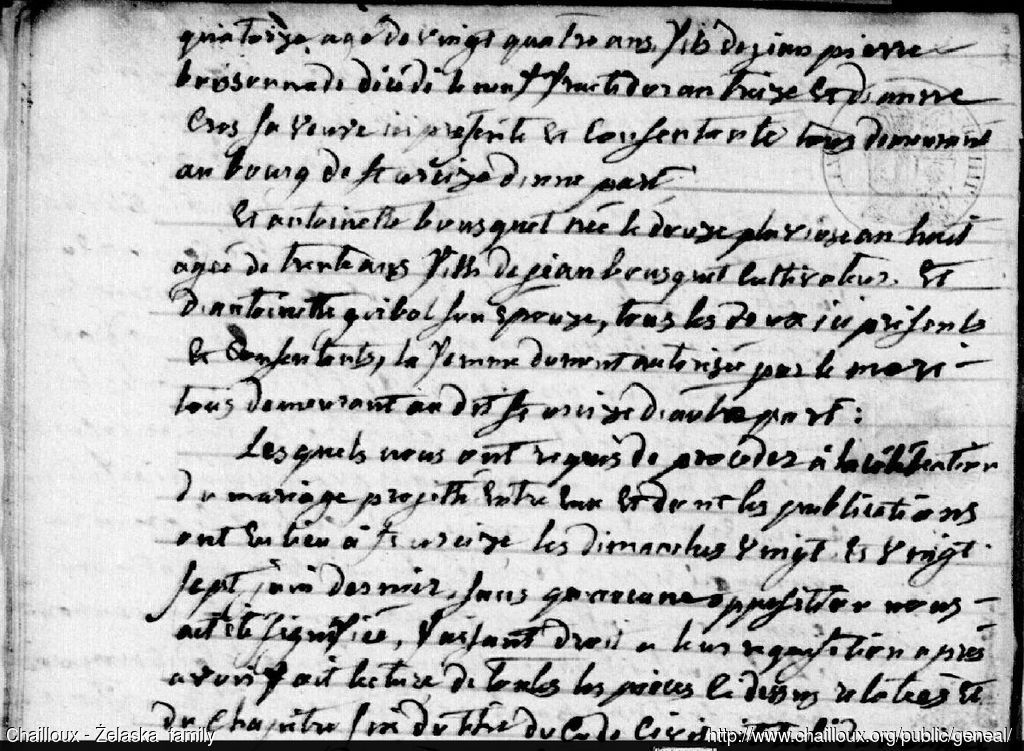 quatorze agé de vingt quatre ans, fils de jean pierre
boissonnade décédé le neuf fructidor an treize et d'anne
Cros sa veuve ici présente et Consentante tous demeurant
au bourg de St urcize d'une part
Et antoinette bousquet née le douze pluviose an huit
agée de trente ans fille de jean bousquet Cultivateur Et
d'antoinette guibal son épouze, tous les deux ici présents
et Consentants, la femme dument autorisée par le mari
tous demeurant au dit St urcize d'autre part :
Lesquels nous ont requis de procéder à la célébration
du mariage projetté entre eux et dont les publications
ont eu lieu à St urcize les dimanches vingt et vingt
sept juin dernier, sans qu'aucune opposition nous
ait été signifiée, faisant droit a leur requisition apres
avoir fait lecture de toutes les pièces ci dessus relatées et
du Chapitre six du titre du Code Civil intitulé
Chailloux - Żelaska family
http://www.chailloux.org/public/geneal/